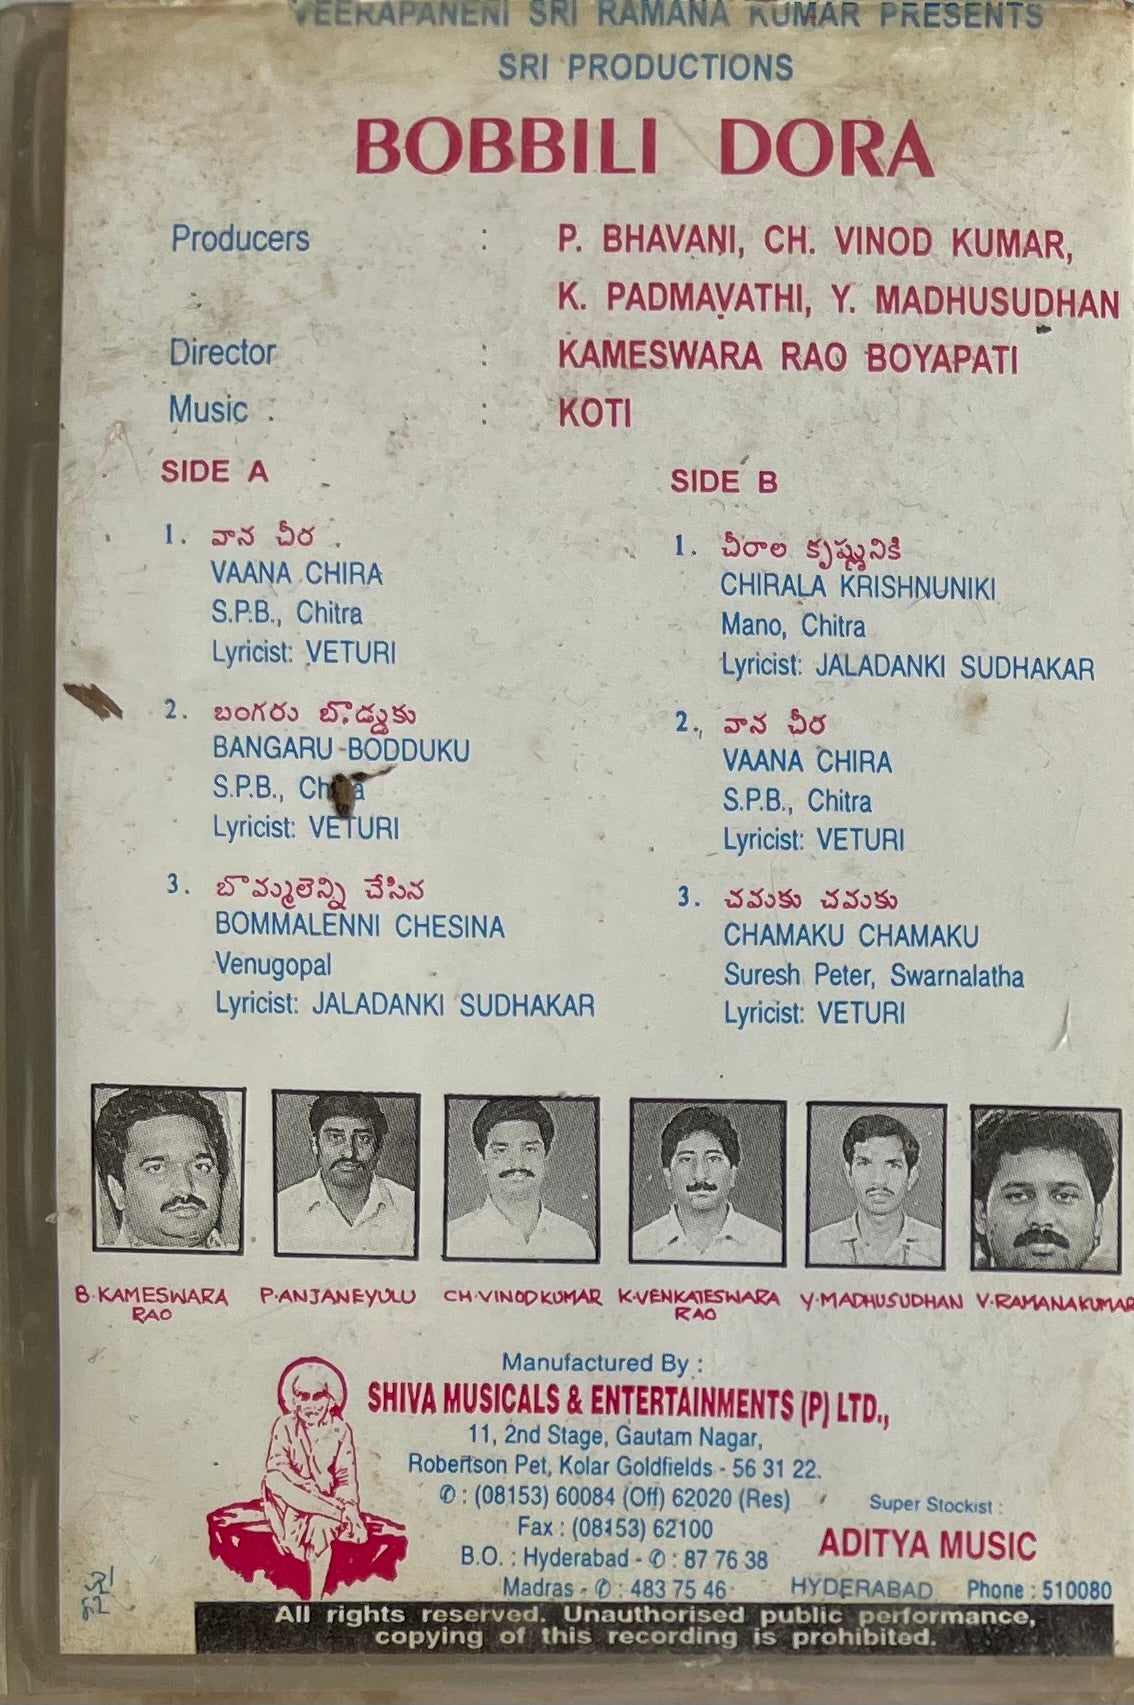 VEERAPANENI SRI RAMANA KUMAR PRESENTS
SRI PRODUCTIONS
BOBBILI DORA
Producers : P. BHAVANI, CH. VINOD KUMAR,
K. PADMAVATHI, Y. MADHUSUDHAN
Director : KAMESWARA RAO BOYAPATI
Music : KOTI
SIDE A
1. వాన చీర
VAANA CHIRA
S.P.B., Chitra
Lyricist: VETURI
2. బంగరు బొడ్డుకు
BANGARU BODDUKU
S.P.B., Chitra
Lyricist: VETURI
3. బొమ్మలెన్ని చేసిన
BOMMALENNI CHESINA
Venugopal
Lyricist: JALADANKI SUDHAKAR
SIDE B
1. చీరాల కృష్ణునికి
CHIRALA KRISHNUNIKI
Mano, Chitra
Lyricist: JALADANKI SUDHAKAR
2. వాన చీర
VAANA CHIRA
S.P.B., Chitra
Lyricist: VETURI
3. చమకు చమకు
CHAMAKU CHAMAKU
Suresh Peter, Swarnalatha
Lyricist: VETURI
B.KAMESWARA RAO
P.ANJANEYULU
CH.VINOD KUMAR
K.VENKATESWARA RAO
Y.MADHUSUDHAN
V.RAMANAKUMAR
Manufactured By :
SHIVA MUSICALS & ENTERTAINMENTS (P) LTD.,
11, 2nd Stage, Gautam Nagar,
Robertson Pet, Kolar Goldfields - 56 31 22.
✆ : (08153) 60084 (Off) 62020 (Res)
Fax : (08153) 62100
B.O. : Hyderabad - ✆ : 87 76 38
Madras - ✆ : 483 75 46
Super Stockist :
ADITYA MUSIC
HYDERABAD Phone : 510080
All rights reserved. Unauthorised public performance,
copying of this recording is prohibited.